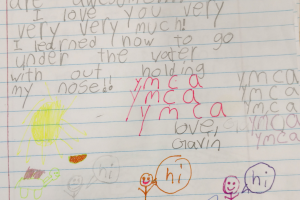 are awesome!!!
I love you very
very very much!
I learned how to go
under the water
with out holding
my nose!!
ymca ymca
ymca ymca
ymca ymca
love, ymca
Gavin ymca
hi hi hi